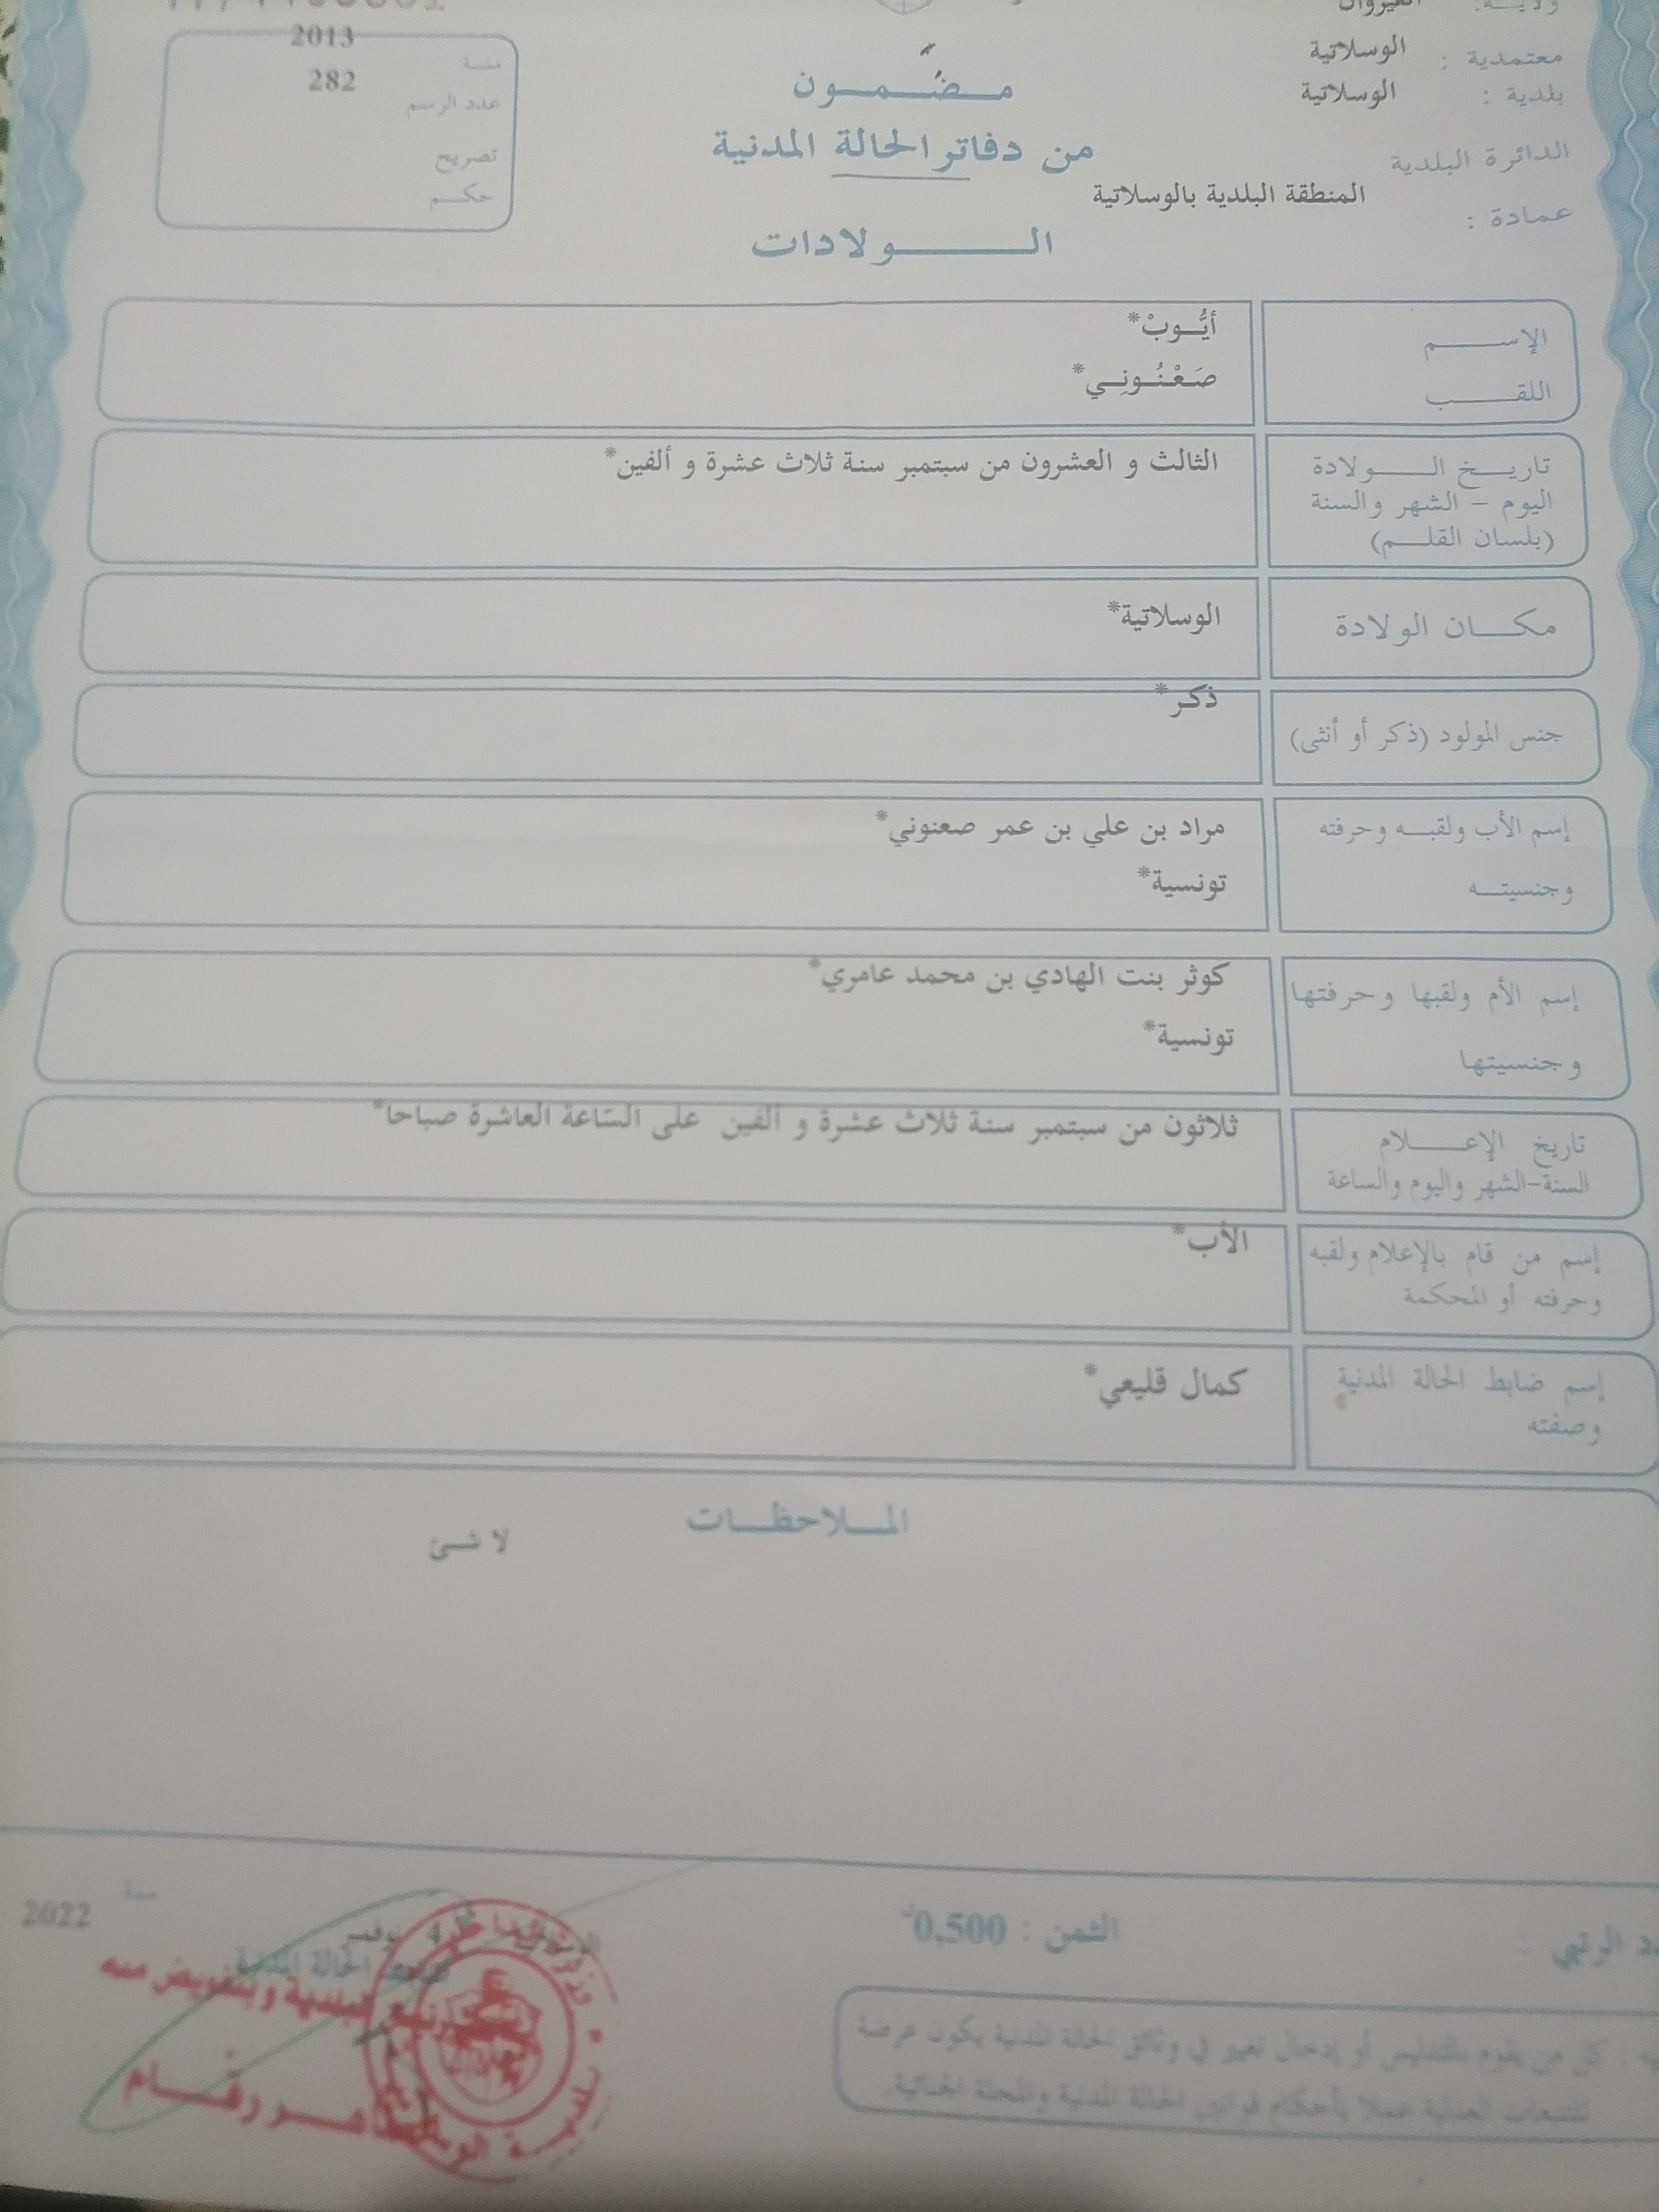 ولايـة: القيروان
معتمدية : الوسلاتية
بلدية : الوسلاتية
الدائرة البلدية
المنطقة البلدية بالوسلاتية
عمادة :
2013
سنـة
282
عدد الرسم
تصريح
حكـم
مـضـمـون
من دفاتر الحالة المدنية
الـولادات
الإسـم
أيُّـوبْ*
اللقـب
صَعْنُـونِـي*
تاريـخ الـولادة
اليوم – الشهر والسنة
(بلسان القلـم)
الثالث و العشرون من سبتمبر سنة ثلاث عشرة و ألفين*
مكـان الولادة
الوسلاتية*
جنس المولود (ذكر أو أنثى)
ذكر*
إسم الأب ولقبـه وحرفته
وجنسيتـه
مراد بن علي بن عمر صعنوني*
تونسية*
إسم الأم ولقبها وحرفتها
وجنسيتها
كوثر بنت الهادي بن محمد عامري*
تونسية*
تاريخ الإعـلام
السنة-الشهر واليوم والساعة
ثلاثون من سبتمبر سنة ثلاث عشرة و ألفين على الساعة العاشرة صباحا*
إسم من قام بالإعلام ولقبه
وحرفته أو المحكمة
الأب*
إسم ضابط الحالة المدنية
وصفته
كمال قليعي*
المـلاحظـات
لا شـئ
سنة
2022
4 نوفمبر
ضابط الحالة المدنية
البلدية وبتفويض منه
الثمن : 0,500د
: كل من يقوم بالتدليس أو إدخال تغيير في وثائق الحالة المدنية يكون عرضة
للتتبعات العدلية عملا بأحكام قوانين الحالة المدنية والمجلة الجنائية.